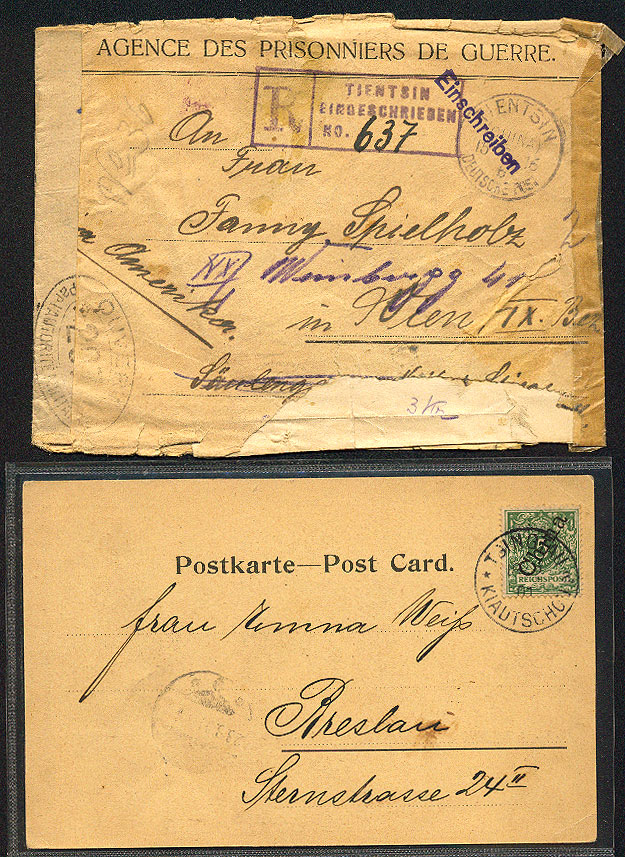 AGENCE DES PRISONNIERS DE GUERRE.
R
TIENTSIN
EINGESCHRIEBEN
NO. 637
Einschreiben
TIENTSIN
DEUTSCHE POST
An
Frau
Fanny Spielholz
via Amerika.
XIX
in Wien IX.
OUVERT
AUTORITÉ
Postkarte—Post Card.
China
REICHSPOST
TSINTAU
KIAUTSCHOU
Frau Emma Weiß
Breslau
Sternstrasse 24 II